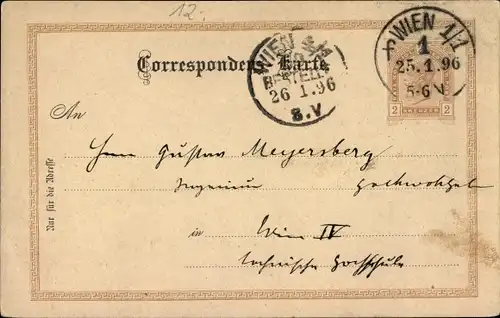 12.-
WIEN 1/1
1
25.1.96
5-6
WIEN
BESTELLT
26 1.96
8.V
Correspondenz-Karte.
2 2
An
Herrn Gustav Meyersberg
Ingenieur hochwohlgeb
in Wien IV
technische Hochschule
Nur für die Adresse